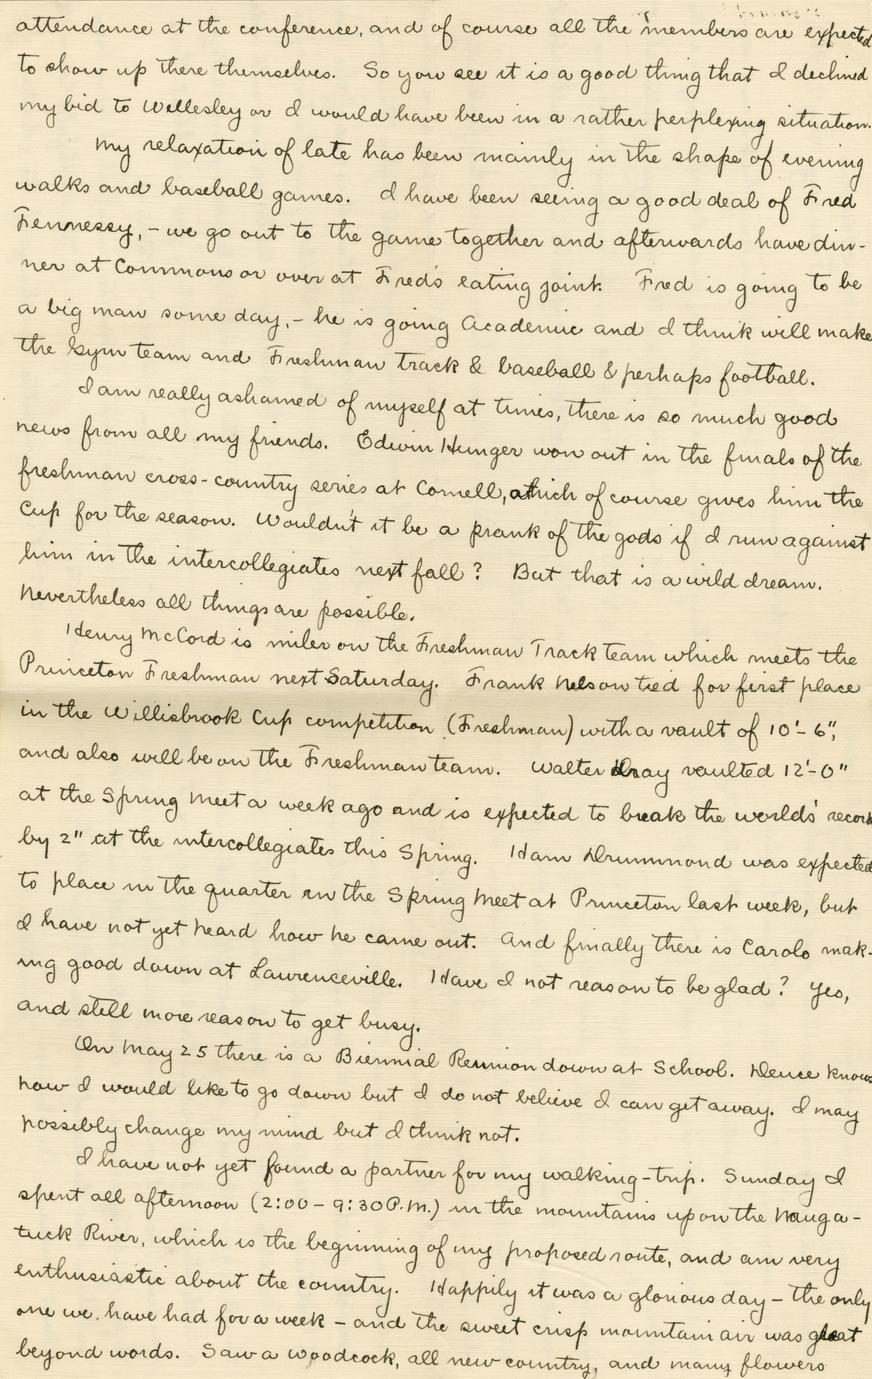 attendance at the conference, and of course all the members are expected
to show up there themselves. So you see it is a good thing that I declined
my bid to Wellesley or I would have been in a rather perplexing situation.
My relaxation of late has been mainly in the shape of evening
walks and baseball games. I have been seeing a good deal of Fred
Fennessy, - we go out to the game together and afterwards have din-
ner at Commons or over at Fred's eating joint. Fred is going to be
a big man some day, - he is going Academic and I think will make
the Gym team and Freshman track & baseball & perhaps football.
I am really ashamed of myself at times, there is so much good
news from all my friends. Edwin Hunger won out in the finals of the
freshman cross-country series at Cornell, which of course gives him the
Cup for the season. Wouldn't it be a prank of the gods if I run against
him in the intercollegiates next fall? But that is a wild dream.
Nevertheless all things are possible.
Henry McCord is miler on the Freshman Track team which meets the
Princeton Freshman next Saturday. Frank Nelson tied for first place
in the Willisbrook Cup competition (Freshman) with a vault of 10'-6",
and also will be on the Freshman team. Walter Dray vaulted 12'-0"
at the Spring Meet a week ago and is expected to break the worlds' record
by 2" at the intercollegiates this Spring. Ham Drummond was expected
to place in the quarter in the Spring Meet at Princeton last week, but
I have not yet heard how he came out. And finally there is Carolo mak-
ing good down at Lawrenceville. Have I not reason to be glad? Yes,
and still more reason to get busy.
On May 25 there is a Biennial Reunion down at School. Deuce knows
how I would like to go down but I do not believe I can get away. I may
possibly change my mind but I think not.
I have not yet found a partner for my walking-trip. Sunday I
spent all afternoon (2:00 - 9:30 P.M.) in the mountains up on the Nauga-
tuck River, which is the beginning of my proposed route, and am very
enthusiastic about the country. Happily it was a glorious day - the only
one we have had for a week - and the sweet crisp mountain air was great
beyond words. Saw a woodcock, all new country, and many flowers